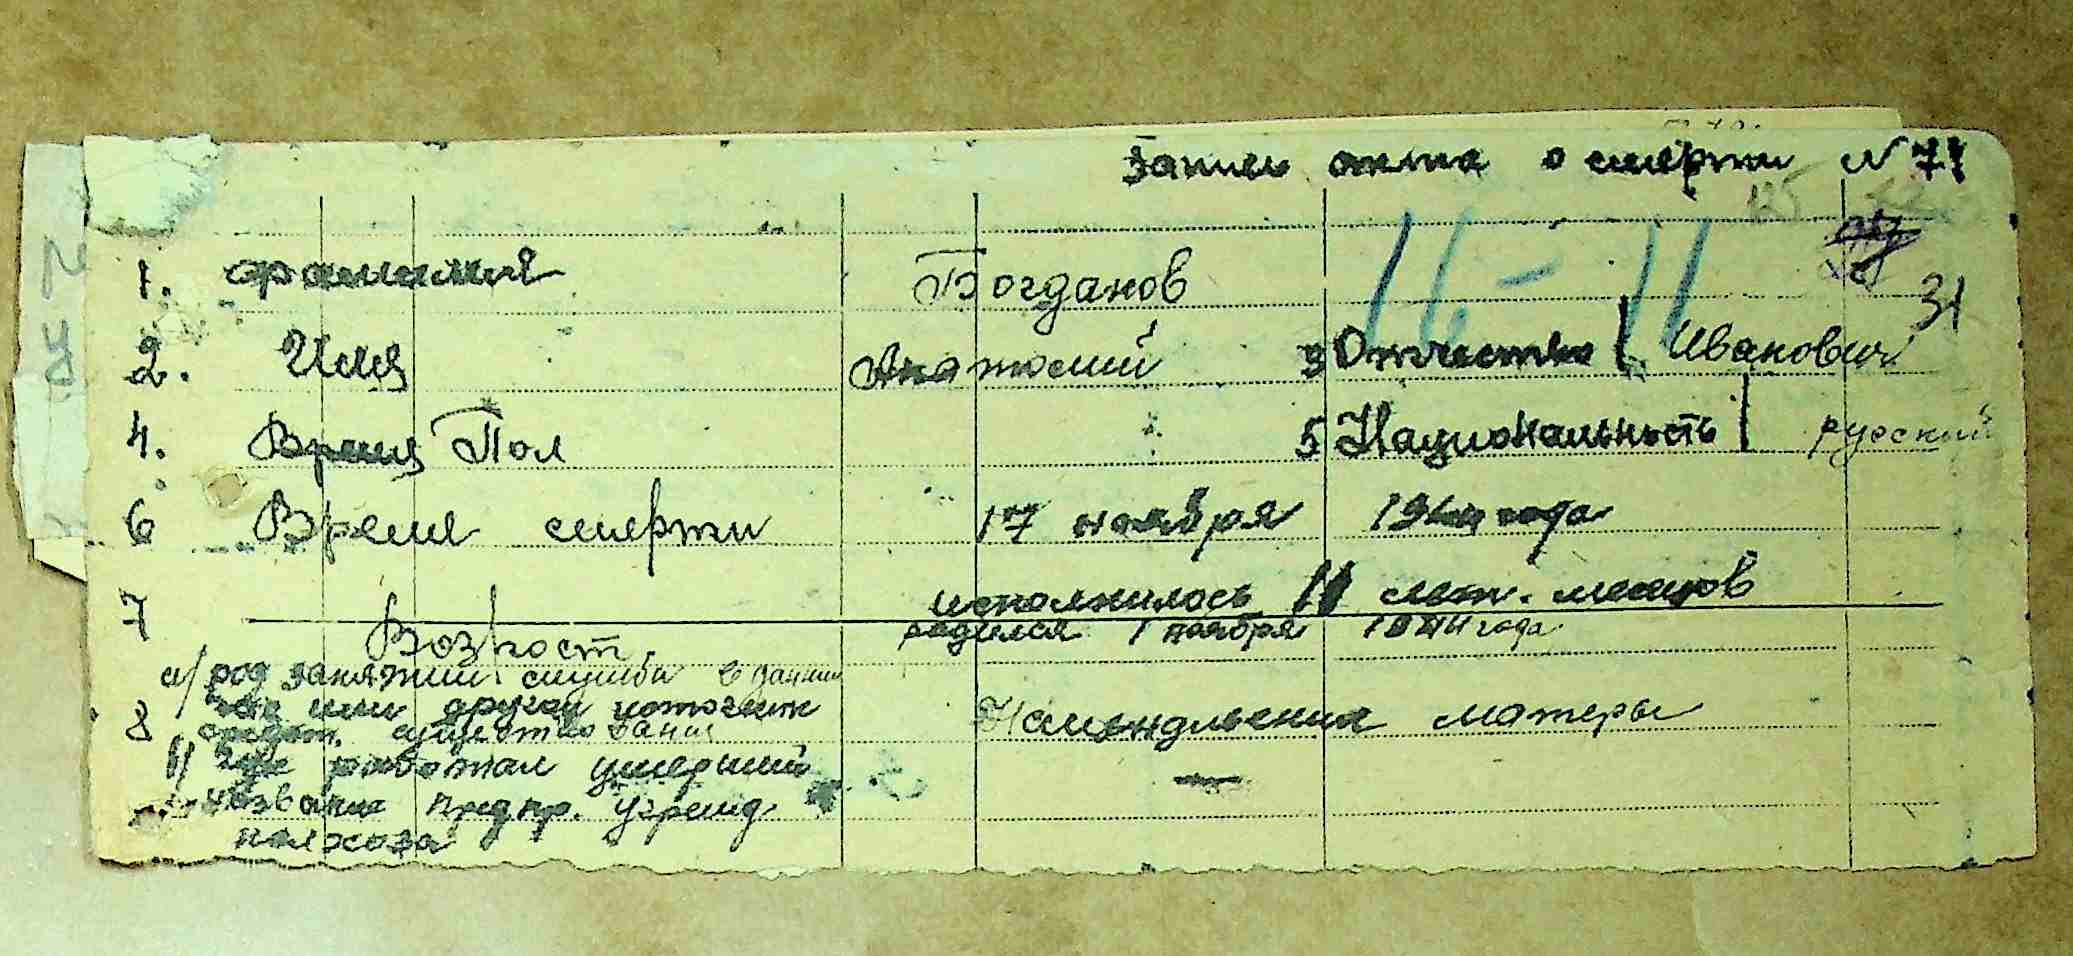 Запись акта о смерти N 71
1. Фамилия Богданов 16-11 31
2. Имя Анатолий 3 Отчество | Иванович
4. Время Пол 5 Национальность | русский
6 Время смерти 17 ноября 1944 года
7 Возраст исполнилось 11 лет. месяцов
родился 1 ноября 1944 года
а/ род занятий службы в данное
8 время или другой источник На иждивении матеры
средст. существования
б/ Где работал умерший —
название предпр. учрежд.
колхоза